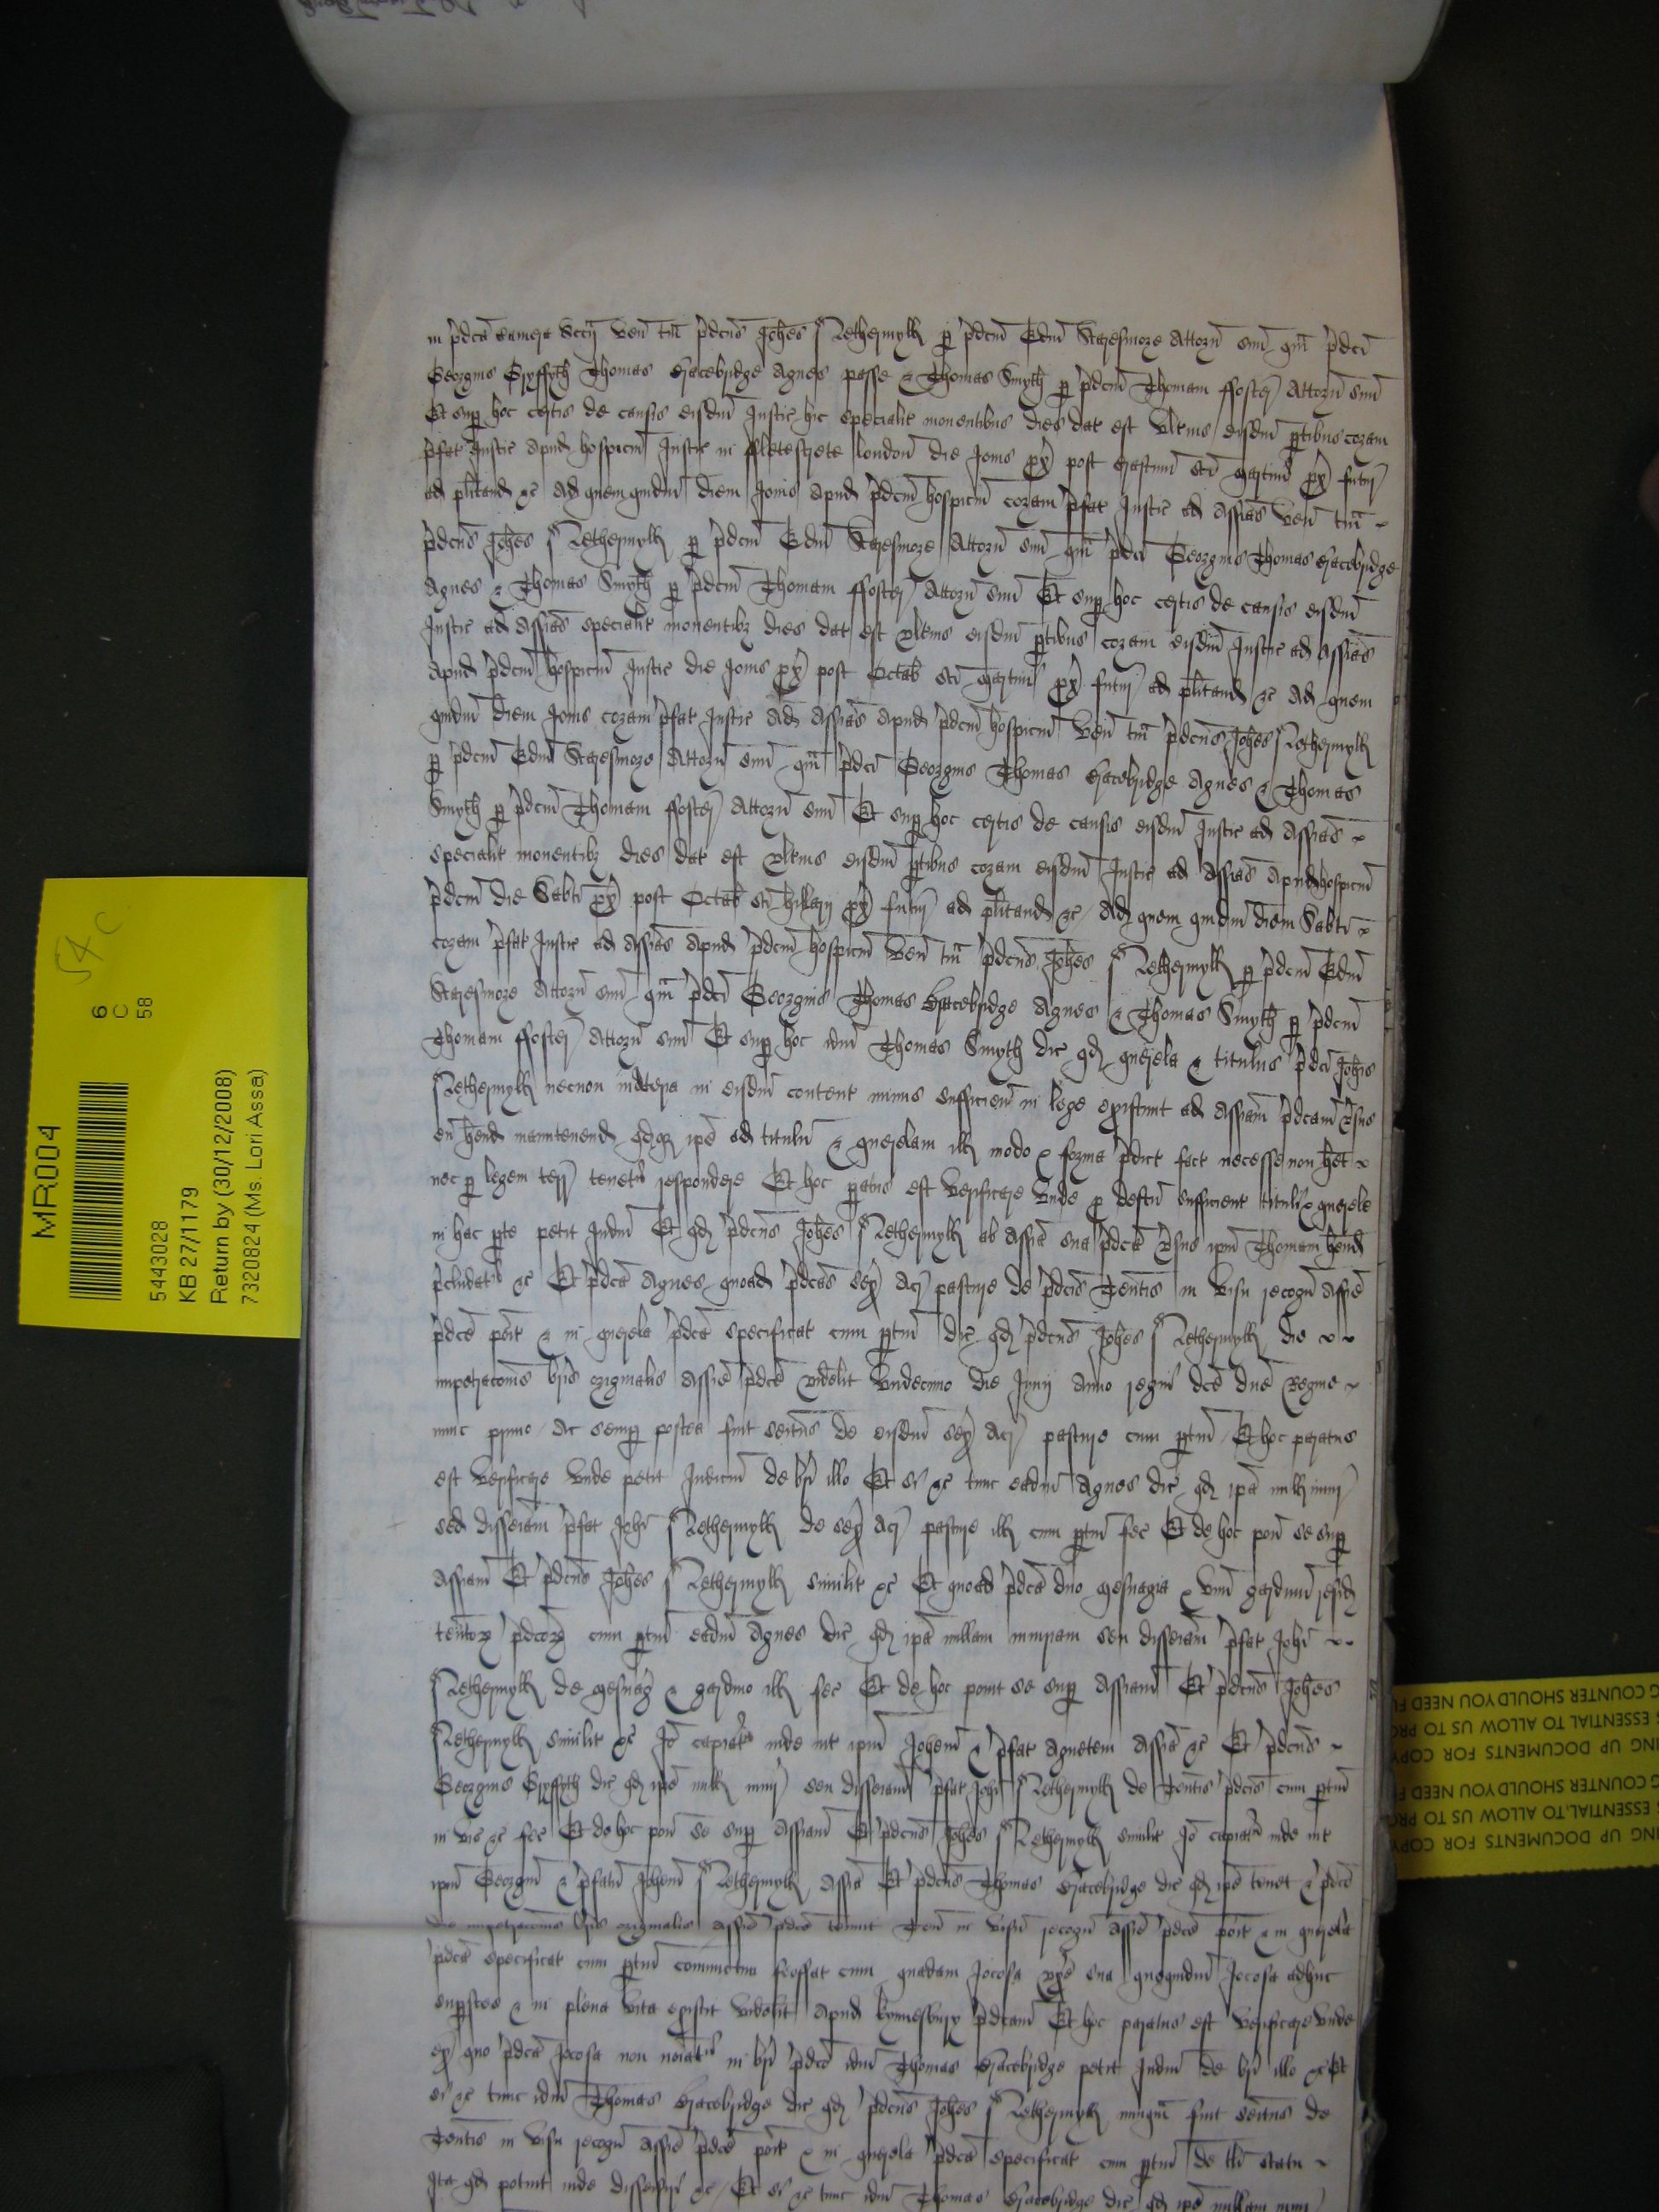 in pdcã camera sccij ven tm pdcus Johes Nethermyll p pdcm Edm Scaresmore Attorn suu qm pdci
Georgius Gryffyth Thomas Gracebridge Agnes passe & Thomas Smyth p pdcm Thomam ffoster Attorn suu
Et sup hoc certis de causis eisdm Justic hic specialit moventibus dies dat est ulterius eisdm ptibus coram
pfat Justic apud hospiciu Justic in ffletestrete london die Jovis px post crastinu sci Martini px futur
ad plitand &c Ad quem quidm diem Jovis apud pdcm hospiciu coram pfat Justic ad assias ven tm
pdcus Johes Nethermyll p pdcm Edm Scaresmore Attorn suu qm pdci Georgius Thomas Gracebridge
Agnes & Thomas Smyth p pdcm Thomam ffoster Attorn suu Et sup hoc certis de causis eisdm
Justic ad assias specialit moventibz dies dat est ulterius eisdm ptibus coram eisdm Justic ad assias
apud pdcm hospiciu Justic die Jovis px post Octab sci Martini px futur ad plitand &c Ad quem
quidm diem Jovis coram pfat Justic ad assias apud pdcm hospiciu ven tm pdcus Johes Nethermyll
p pdcm Edm Scaresmore Attorn suu qm pdci Georgius Thomas Gracebridge Agnes & Thomas
Smyth p pdcm Thomam ffoster Attorn suu Et sup hoc certis de causis eisdm Justic ad assias
specialit moventibz dies dat est ulterius eisdm ptibus coram eisdm Justic ad assias apud hospiciu
pdcm die Sabti px post Octab sci hillarij px futur ad plitand &c Ad quem quidm diem Sabti
coram pfat Justic ad assias apud pdcm hospiciu ven tm pdcus Johes Nethermyll p pdcm Edm
Scaresmore Attorn suu qm pdci Georgius Thomas Gracebridge Agnes & Thomas Smyth p pdcm
Thomam ffoster Attorn suu Et sup hoc idm Thomas Smyth dic qd querela & titulus pdci Johis
Nethermyll necnon materia in eisdm content minus sufficien in lege existunt ad assiam pdcam vsus
eu hend manutenend qdqz ipe ad titulu & querelam ill modo & forma pdict fact necesse non het
nec p legem terr tenetr respondere Et hoc paratus est verificare unde p defctu sufficient tituli & querele
in hac pte petit Judm Et qd pdcus Johes Nethermyll ab assia sua pdca vsus ipm Thomam hend
pcludatr &c Et pdca Agnes quoad pdcas sex acr pasture de pdcis Tentis in visu recogn assie
pdce posit & in querela pdca specificat cum ptin dic qd pdcus Johes Nethermyll die
impetracois bris originalis assie pdce videlit undecimo die Junij anno regni dce dne Regine
nunc primo ac semp postea fuit seitus de eisdm sex acr pasture cum ptin Et hoc paratus
est verificare unde petit Judiciu de bri illo Et si &c tunc eadm Agnes dic qd ipa null iniur
seu disseinam pfat Johi Nethermyll de sex acr pasture ill cum ptin fec Et de hoc pon se sup
assiam Et pdcus Johes Nethermyll similit &c Et quoad pdca duo mesuagia & unu gardinu resid
tentorz pdcorz cum ptin eadm Agnes dic qd ipa nullam iniuriam seu disseinam pfat Johi
Nethermyll de mesuag & gardino ill fec Et de hoc ponit se sup assiam Et pdcus Johes
Nethermyll similit &c Io capiatr inde int ipm Johem & pfat Agnetem assia &c Et pdcus
Georgius Gryffyth dic qd ipe null iniur seu disseinam pfat Johi Nethermyll de Tentis pdcis cum ptin
in vis &c fec Et de hoc pon se sup assiam Et pdcus Johes Nethermyll similit Io capiatr inde int
ipm Georgiu & pfatu Johem Nethermyll assia Et pdcus Thomas Gracebridge dic qd ipe tenet & pdco
die impetracois bris originalis assie pdce tenuit Ten in visu recogn assie pdce posit & in querela
pdca specificat cum ptin coniunctim feoffat cum quadam Jocosa uxe sua quequidm Jocosa adhuc
supstes & in plena vita existit videlit apud kynnesbury pdcam Et hoc paratus est verificare unde
ex quo pdca Jocosa non noiatr in bri pdco idm Thomas Gracebridge petit Judm de bri illo &c Et
si &c tunc idm Thomas Gracebridge dic qd pdcus Johes Nethermyll nunqm fuit seitus de
Tentis in visu recogn assie pdce posit & in querela pdca specificat cum ptin de tli statu
Ita qd potuit inde disseisiri &c Et si &c tunc idm Thomas Gracebridge dic qd ipe nullam iniur
MR004
6
C
58
5443028
KB 27/1179
Return by (30/12/2008)
7320824 (Ms. Lori Assa)